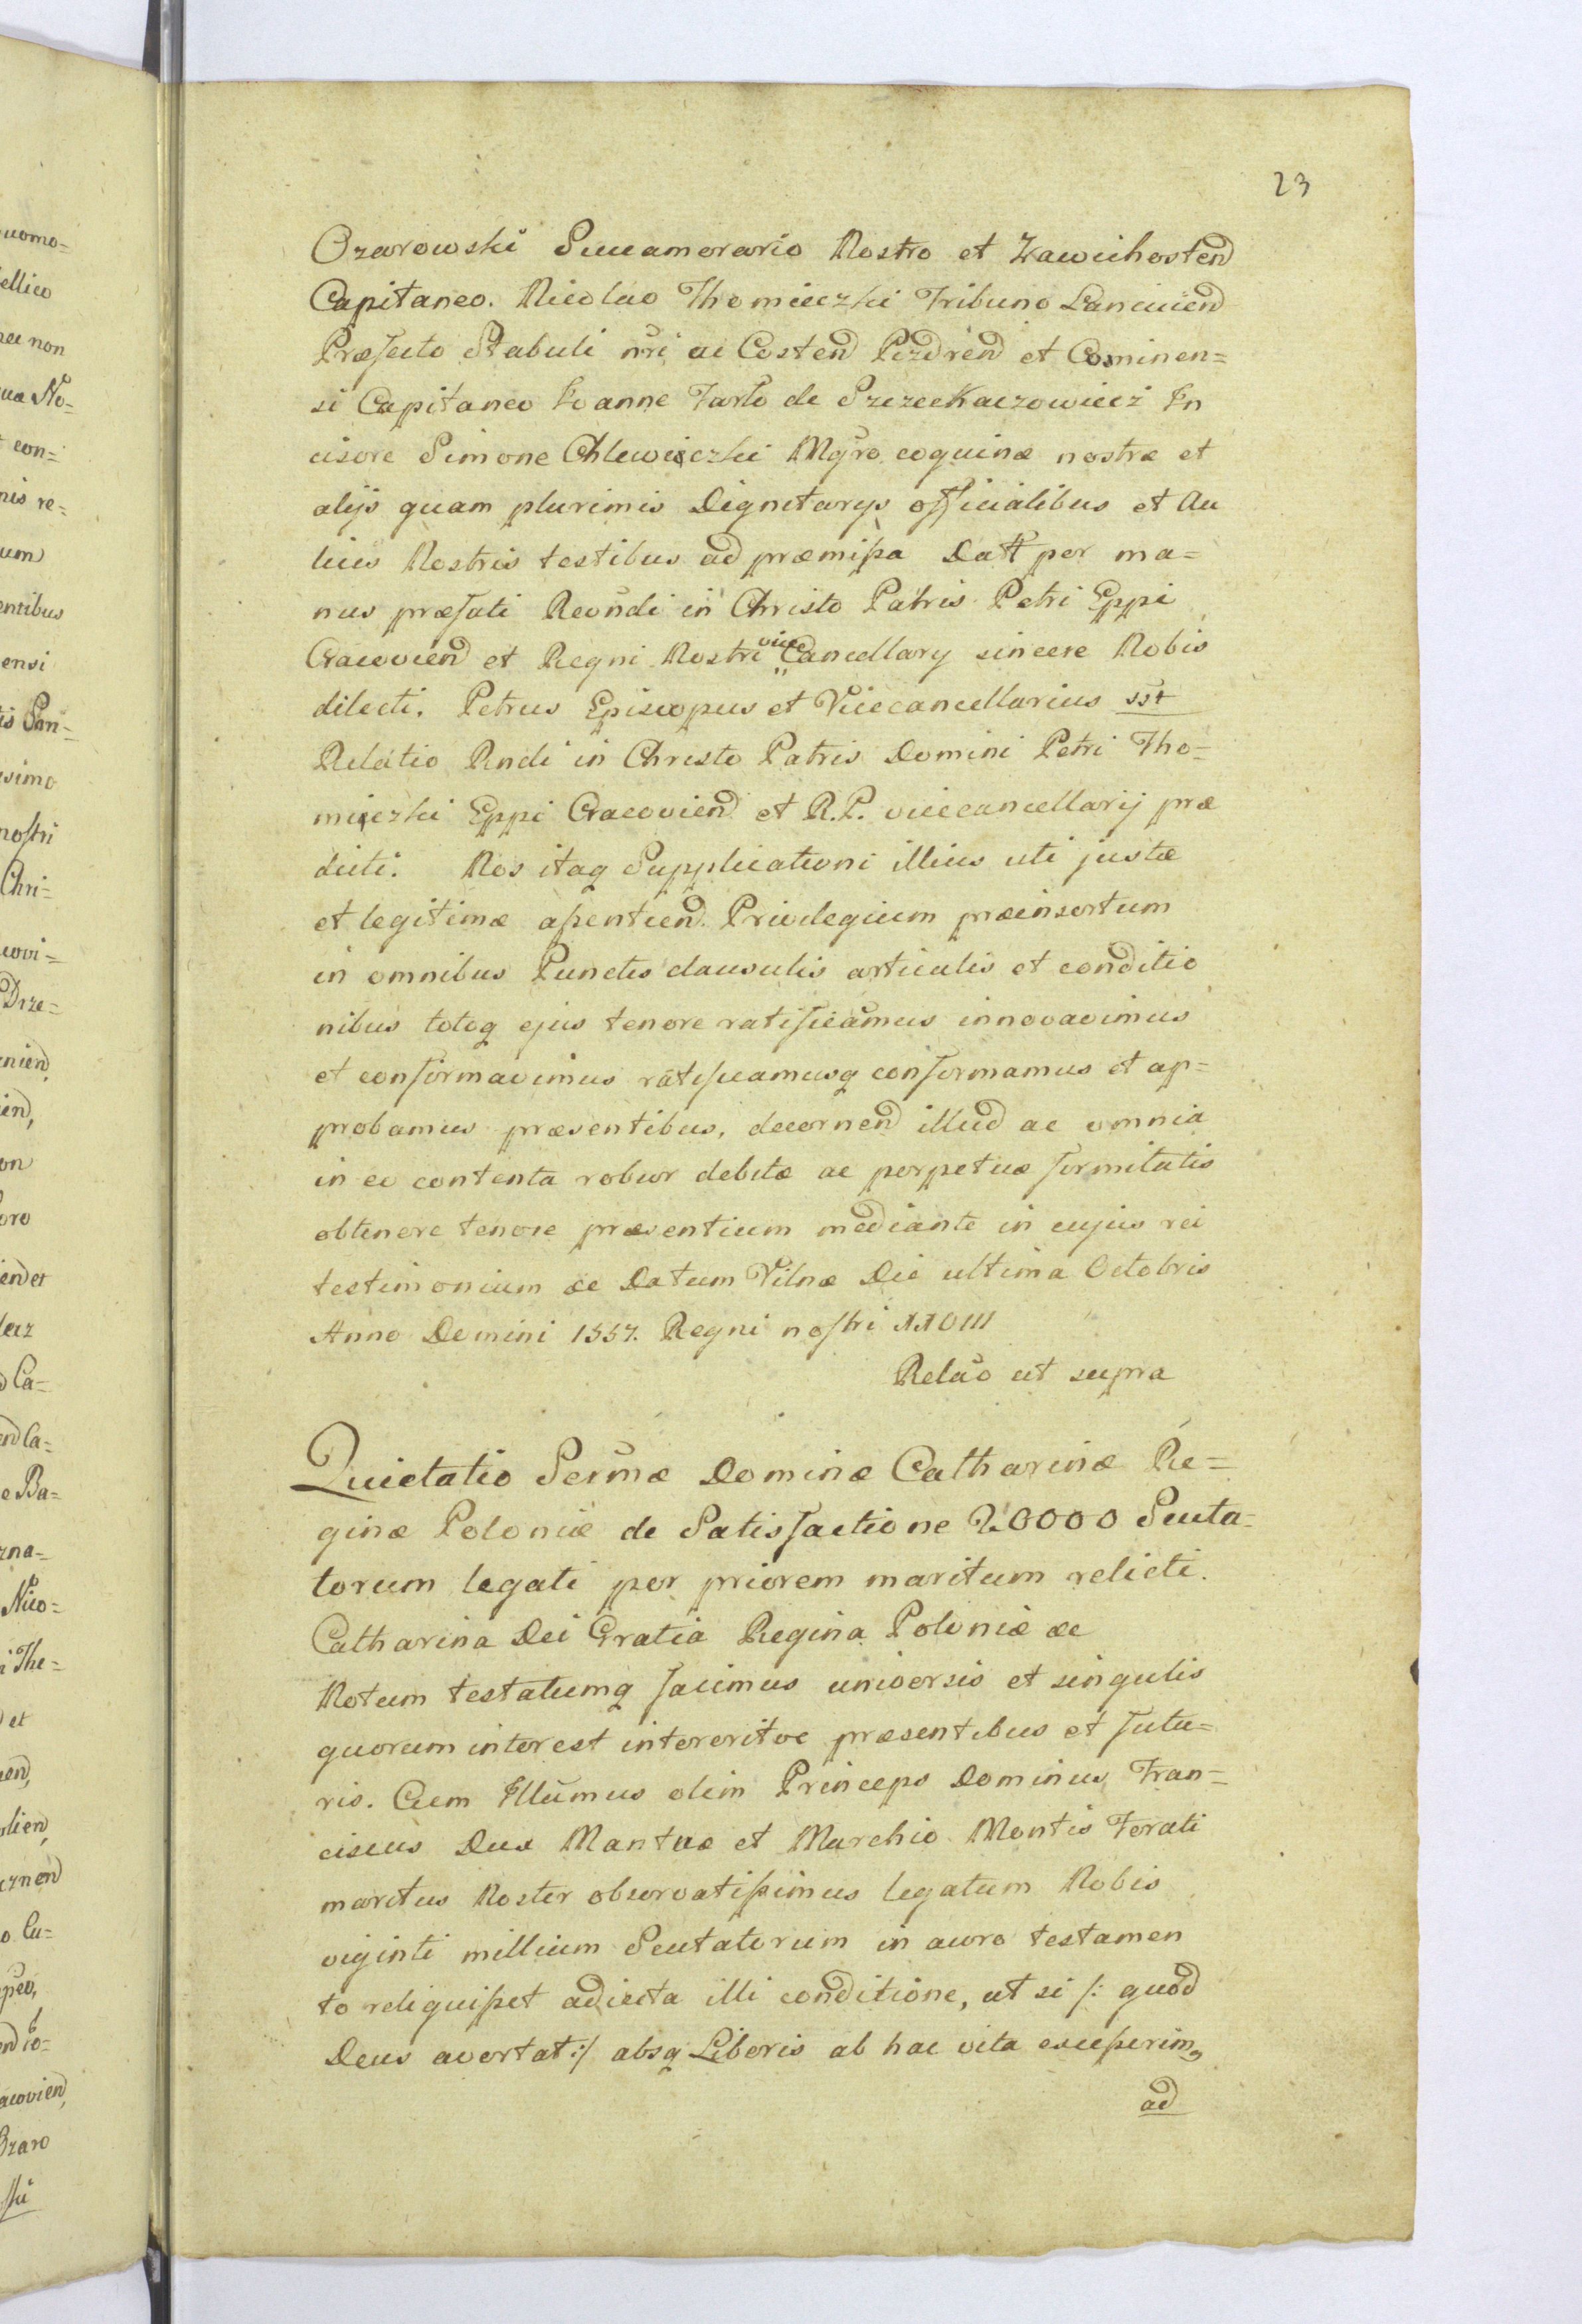 23
Ozarowski Succamerario Nostro et Zawichosten̄
Capitaneo. Nicolao Thomieczki Tribuno Lancicien̄
Præfecto Stabuli nr̄i ac Costen̄ Pizdren̄ et Cosminen=
si Capitaneo Ioanne Tarło de Szczeekaczowicz In
cisore Simone Chlewieczki Mgr̄o coquinæ nostræ et
alijs quam plurimis Dignitarys officialibus et Au
licis Nostris testibus ad præmißa Datt per ma=
nus præfati Reūndi in Christo Patris Petri Eppi
Cracovien̄ et Regni Nostri vice Cancellary sincere Nobis
dilecti. Petrus Episcopus et Vicecancellarius sst
Relatio Rndi in Christo Patris Domini Petri Tho=
mieczki Eppi Cracovien̄ et R.P. vicecancellarij præ
dicti. Nos itaq Supplicationi illius uti justæ
et legitimæ aßentien̄. Privilegium præinsertum
in omnibus Punctis clausulis articulis et conditio
nibus totoq ejus tenore ratificāmus innovavimus
et confirmavimus ratificamusq confirmamus et ap=
probamus præsentibus, decernen̄ illud ac omnia
in eo contenta robur debitæ ac perpetuæ firmitatis
obtinere tenore præsentium mediante in cujus rei
testimonium &c Datum Vilnæ Die ultima Octobris
Anno Domini 1557. Regni nostri XXVIII
Relāo ut supra
Quietatio Serm̄æ Dominæ Catharinæ Re=
ginæ Poloniæ de Satisfactione 20000 Scuta=
torum legati per priorem maritum relicti.
Catharina Dei Gratia Regina Poloniæ &c
Notum testatumq facimus universis et singulis
quorum interest intereritve præsentibus et futu=
ris. Cum Illūmus olim Princeps Dominus Fran=
ciscus Dux Mantuæ et Marchio Montis Ferati
maritus Noster observatißimus legatum Nobis
viginti millium Scutatorum in auro testamen
to reliquißet adiecta illi conditione, ut si /: quod
Deus avertat :/ absq Liberis ab hac vita exceßerim,
ad
uomo=
ellico
nec non
qua No=
con=
nis re=
um
entibus
ensi
is San=
ssimo
nostri
Chri=
covi=
Drze=
nien̄,
ien̄,
on
oro
ien̄ et
Ca=
en̄ Ca=
e Ba=
rna=
Nico=
i Tho=
et
en̄,
lien̄,
rznen̄
o Cu=
peo,
n̄ Io=
acovien̄,
Ozaro
ski